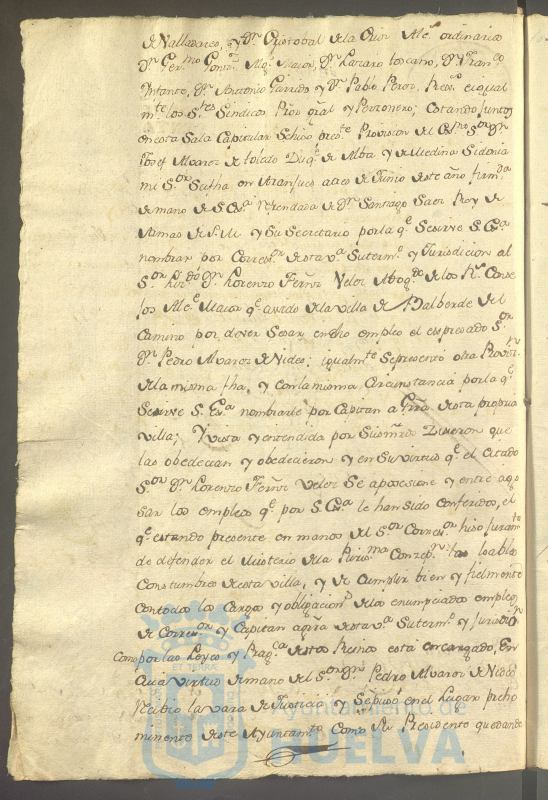 de Valladares, y Dn Cristobal de la Cruz Alces ordinarios
Dn Germo Gonz Algl Maior, Dn Lazaro toscano, Dn Franco
Infante, Dn Antonio Garrido y Dn Pablo Perez, Rexs e igual
mte los Sres Sindicos Pror gral y Perzonero; estando juntos
en esta Sala Capitular se hiso preste Provision del Exmo Sor Dn
Josef Alvarez de toledo Duqe de Alba y de Medina Sidonia
mi Sor su fha en Aranjues a tres de Junio de este año firmda
de mano de S. Exa refrendada de Dn Santiago Saez Rey de
Armas de S. M. y su Secretario por la qe se sirve S. Exa
nombrar por Corregor de esta va su termo y Jurisdicion al
Sor Lizdo Dn Lorenzo Ferñz Velez Abogdo de los Rs Conse
los Alce Maior qe a sido de la villa de Balberde del
Camino por dever sesar en dho empleo el espresado Sor
Dn Pedro Alvarez de Nides; igualmte se presentó otra Provon
de la misma fha, y con la misma circunstancia por la qe
se sirve S. Exa nombrarle por Capitan a Grra de esta propria
villa; Y vista y entendida por sus mrds Dixeron que
las obedecian y obedecieron y en su virtud qe el citado
Sor Dn Lorenzo Ferñz Velez se aposesione y entre a go
sar los empleos qe por S. Exa le han sido conferidos, el
qe estando presente en manos del Sor Corregor hiso juramto
de defender el Misterio de la Purisma Conzepn las loables
Constumbres de esta villa, y de cumplir bien y fielmente
con todos los cargos y obligacions de los enunciados empleos
de Corregor y Capitan a grra de esta va su termo y Jurisdon
como por las Leyes y Pragca de estos Reinos está encargado, En
cuia virtud de mano del Sor Dn Pedro Alvarez de Nides
recivio la vara de Justicia y se sento en el lugar prehe
minente de este Ayuntamto como su Presidente quedando
ET TERRÆ
Ayuntamiento de
HUELVA